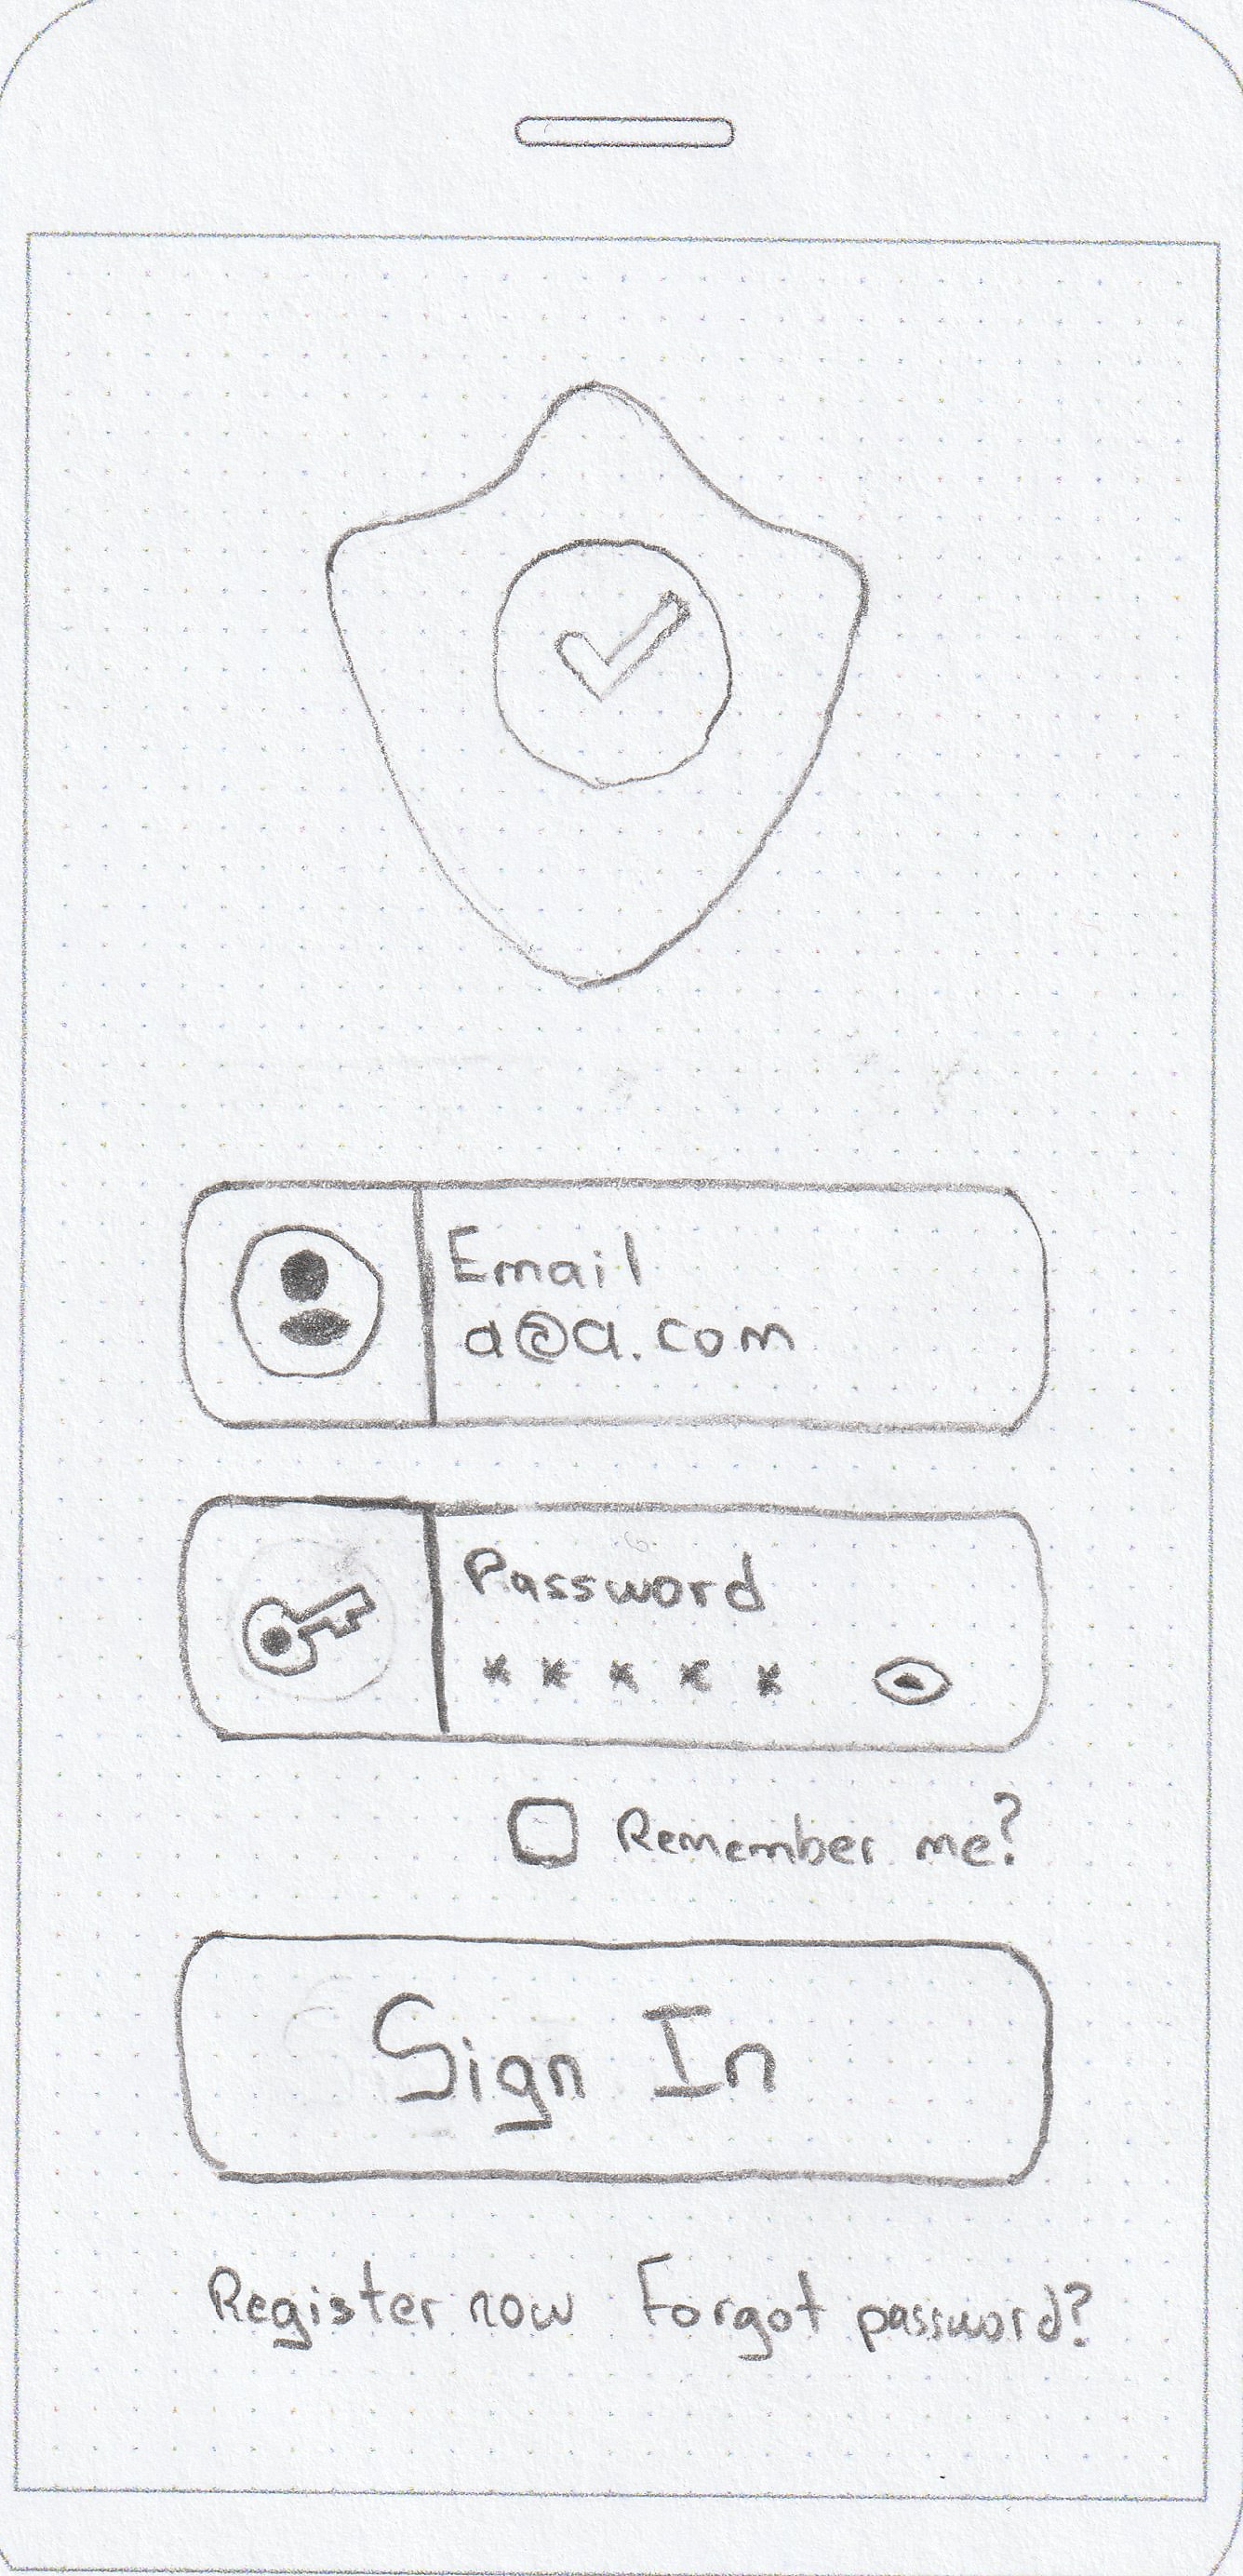 Email
a@a.com
Password
* * * * *
Remember me?
Sign In
Register now Forgot password?